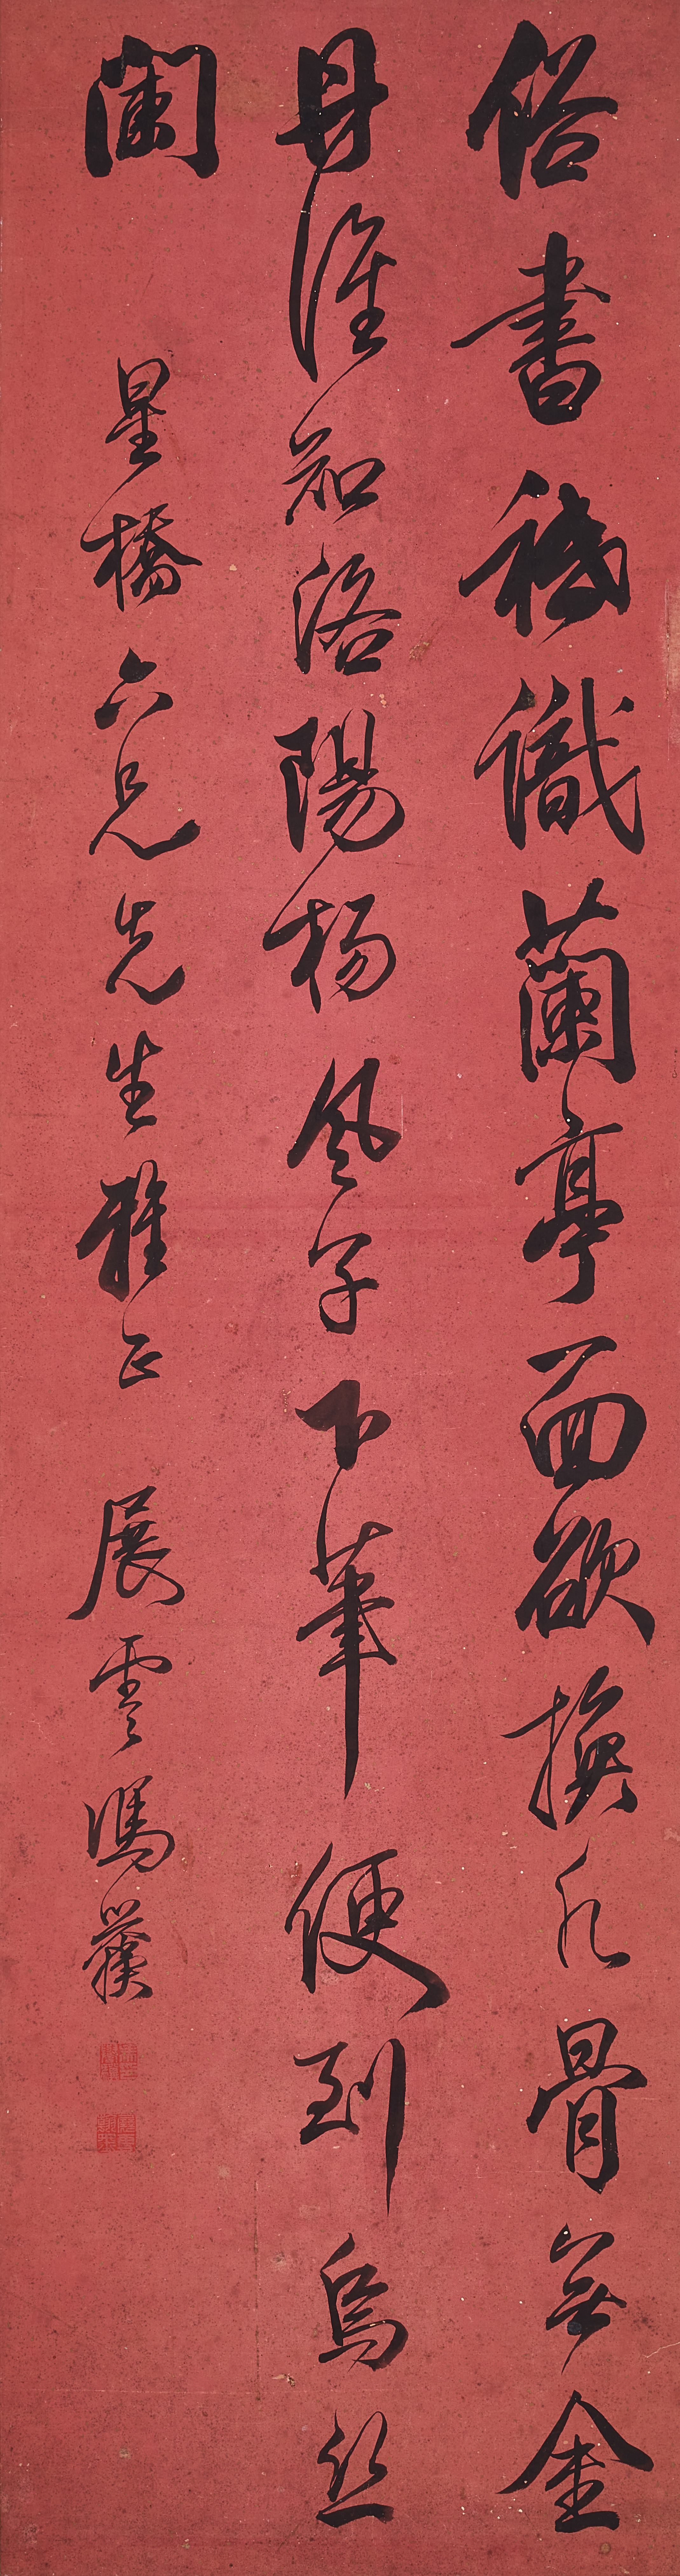 俗書祇識蘭亭面欲換凡骨無金
丹誰知洛陽楊風子下筆便到烏絲
闌 星橋六兄先生雅正 展雲馮